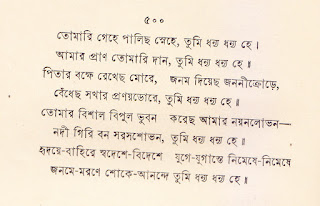 ৫০০
তোমারি গেহে পালিছ স্নেহে, তুমি ধন্য ধন্য হে।
আমার প্রাণ তোমারি দান, তুমি ধন্য ধন্য হে॥
পিতার বক্ষে রেখেছ মোরে, জনম দিয়েছ জননীক্রোড়ে,
বেঁধেছ সখার প্রণয়ডোরে, তুমি ধন্য ধন্য হে॥
তোমার বিশাল বিপুল ভুবন করেছ আমার নয়নলোভন—
নদী গিরি বন সরসশোভন, তুমি ধন্য ধন্য হে॥
হৃদয়ে-বাহিরে স্বদেশে-বিদেশে যুগে-যুগান্তে নিমেষে-নিমেষে
জনমে-মরণে শোকে-আনন্দে তুমি ধন্য ধন্য হে॥